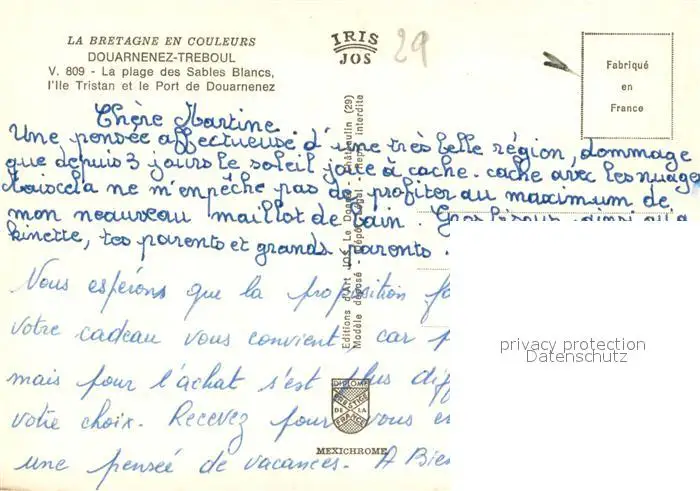 LA BRETAGNE EN COULEURS
DOUARNENEZ-TREBOUL
V. 809 - La plage des Sables Blancs,
l'Ile Tristan et le Port de Douarnenez
IRIS
JOS
29
Fabriqué
en
France
Chère Martine
Une pensée affectueuse d'une très belle région, dommage
que depuis 3 jours le soleil joue à cache-cache avec les nuages
Mais cela ne m'empêche pas de profiter au maximum de
mon nouveau maillot de bain. Gros bisous ainsi qu'à
kinette, tes parents et grands-parents.
Nous espérons que la proposition
votre cadeau vous convient, car
mais pour l'achat s'est plus
votre choix. Recevez pour vous
une pensée de vacances. A
Editions d'Art JOS Le Doaré - Châteaulin (29)
Modèle déposé - Dépôt légal - Repr. interdite
DIPLOME
PRESTIGE
DE LA
FRANCE
MEXICHROME
privacy protection
Datenschutz